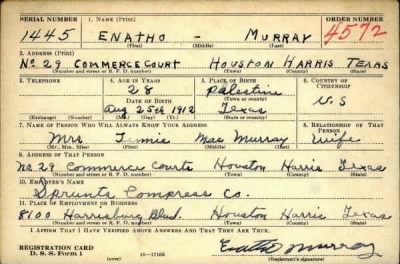 SERIAL NUMBER 1. NAME (Print) ORDER NUMBER
1445 ENATHO - MURRAY 4572
(First) (Middle) (Last)
2. ADDRESS (Print)
No. 29 COMMERCE COURT HOUSTON HARRIS TEXAS
(Number and street or R. F. D. number) (Town) (County) (State)
3. TELEPHONE 4. AGE IN YEARS 5. PLACE OF BIRTH 6. COUNTRY OF CITIZENSHIP
28 Palestine
DATE OF BIRTH (Town or county) U.S
Aug 25th 1912 Texas
(Exchange) (Number) (Mo.) (Day) (Yr.) (State or country)
7. NAME OF PERSON WHO WILL ALWAYS KNOW YOUR ADDRESS 8. RELATIONSHIP OF THAT PERSON
Mrs. Mae Murray Wife
(Mr., Mrs., Miss) (First) (Middle) (Last)
9. ADDRESS OF THAT PERSON
No. 29 Commerce Courts Houston Harris Texas
(Number and street or R. F. D. number) (Town) (County) (State)
10. EMPLOYER'S NAME
Sprunts Compress Co.
11. PLACE OF EMPLOYMENT OR BUSINESS
8100 Harrisburg Blvd. Houston Harris Texas
(Number and street or R. F. D. number) (Town) (County) (State)
I AFFIRM THAT I HAVE VERIFIED ABOVE ANSWERS AND THAT THEY ARE TRUE.
REGISTRATION CARD
D. S. S. FORM 1 16—17105 Enatho Murray
(Registrant's signature)